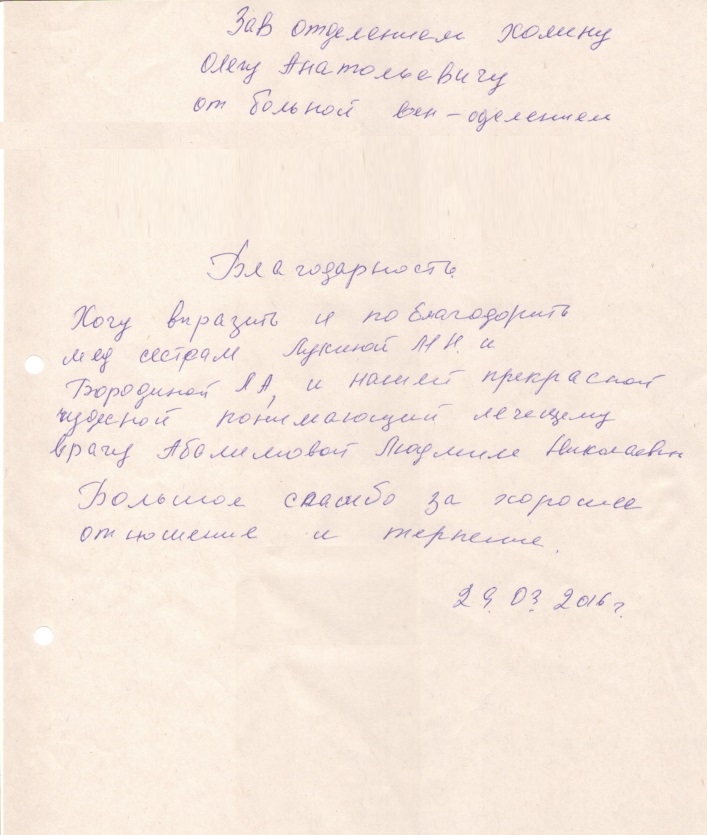 Зав отделением Холину
Олегу Анатольевичу
от больной вен-оделением
Благодарность
Хочу выразить и поблагодорить
мед сестрам Лукиной М Н. и
Бородиной Л А, и нашей прекрасной
чудесной понимающий лечещему
врачу Абалимовой Людмиле Николаевне
Большое спасибо за хорошее
отношение и терпение.
29. 03. 2016 г.